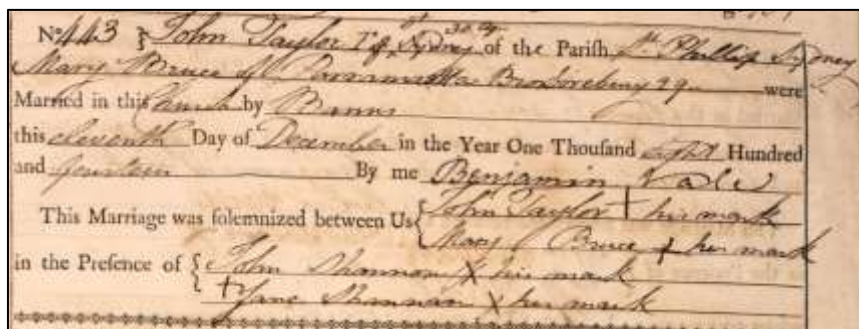 No 443 } John Taylor of Sydney of the Parish St. Phillip Sydney
Mary Bruce of Parramatta Broxbornebury 29 were
Married in this Church by Banns
this eleventh Day of December in the Year One Thousand eight Hundred
and fourteen By me Benjamin Vale
This Marriage was solemnized between Us { John Taylor + his mark
Mary Bruce + her mark
in the Presence of { John Shannon X his mark
+ Jane Shannan X her mark